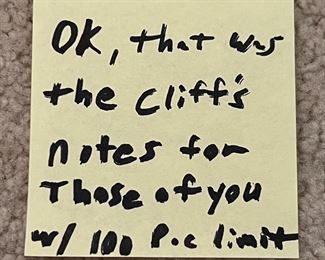 OK, that was
the cliff's
notes for
Those of you
w/ 100 P.c limit